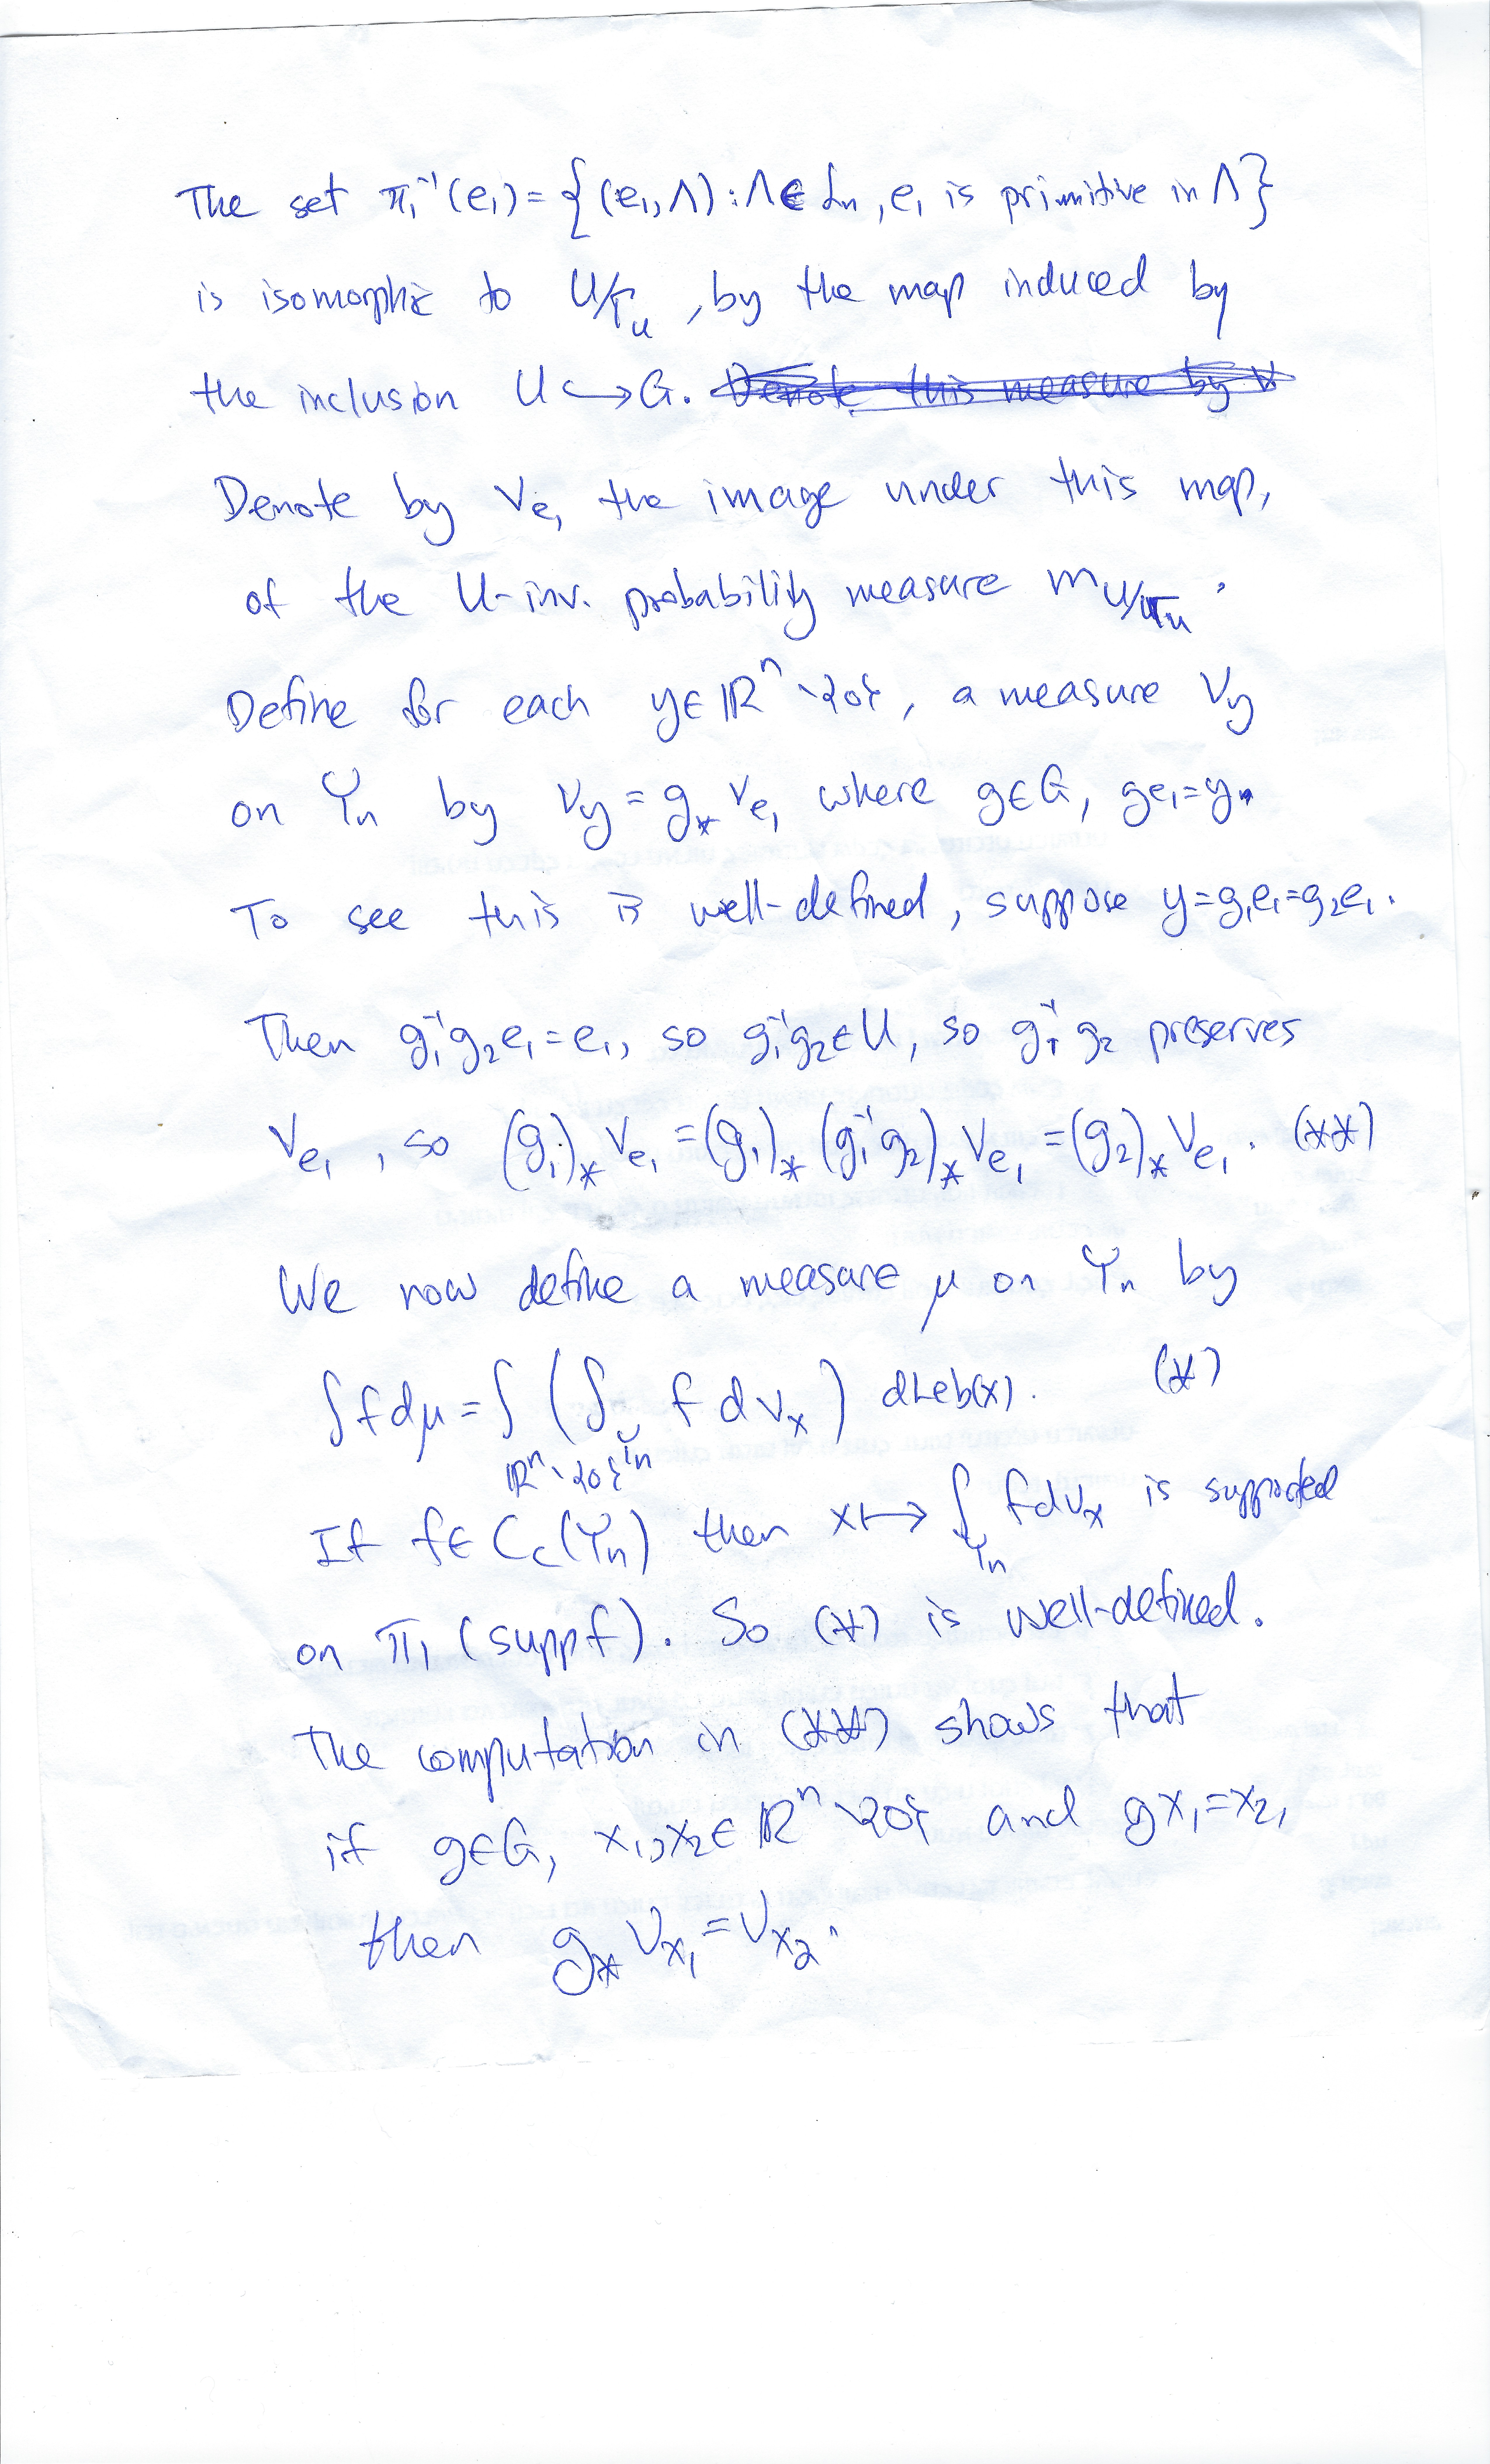 The set π₁⁻¹(e₁) = { (e₁, Λ) : Λ ∈ ℒₙ, e₁ is primitive in Λ }
is isomorphic to U/Γ_U, by the map induced by
the inclusion U ↪ G. Denote this measure by ν
Denote by ν_{e₁} the image under this map,
of the U-inv. probability measure m_{U/Γ_U}.
Define for each y ∈ ℝⁿ∖{0}, a measure ν_y
on Yₙ by ν_y = g_* ν_{e₁} where g ∈ G, ge₁ = y.
To see this is well-defined, suppose y = g₁e₁ = g₂e₁.
Then g₁⁻¹g₂e₁ = e₁, so g₁⁻¹g₂ ∈ U, so g₁⁻¹g₂ preserves
ν_{e₁}, so (g₁)_* ν_{e₁} = (g₁)_* (g₁⁻¹g₂)_* ν_{e₁} = (g₂)_* ν_{e₁}. (**)
We now define a measure μ on Yₙ by
∫ f dμ = ∫_{ℝⁿ∖{0}} ( ∫_{Yₙ} f dν_x ) dLeb(x). (*)
If f ∈ C_c(Yₙ) then x ↦ ∫_{Yₙ} f dν_x is supported
on π₁(supp f). So (*) is well-defined.
The computation in (**) shows that
if g ∈ G, x₁, x₂ ∈ ℝⁿ∖{0} and gx₁ = x₂,
then g_* ν_{x₁} = ν_{x₂}.